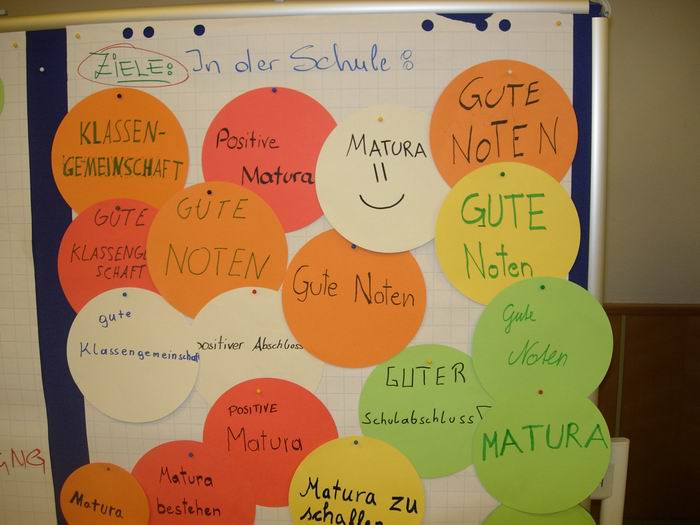 ZIELE: In der Schule:
KLASSEN-
GEMEINSCHAFT
Positive
Matura
MATURA
GUTE
NOTEN
GUTE
KLASSENGE
SCHAFT
GUTE
NOTEN
GUTE
Noten
Gute Noten
gute
Klassengemeinschaft
positiver Abschluss
Gute
Noten
GUTER
Schulabschluss
POSITIVE
Matura
MATURA
Matura
Matura
bestehen
Matura zu
schaffen